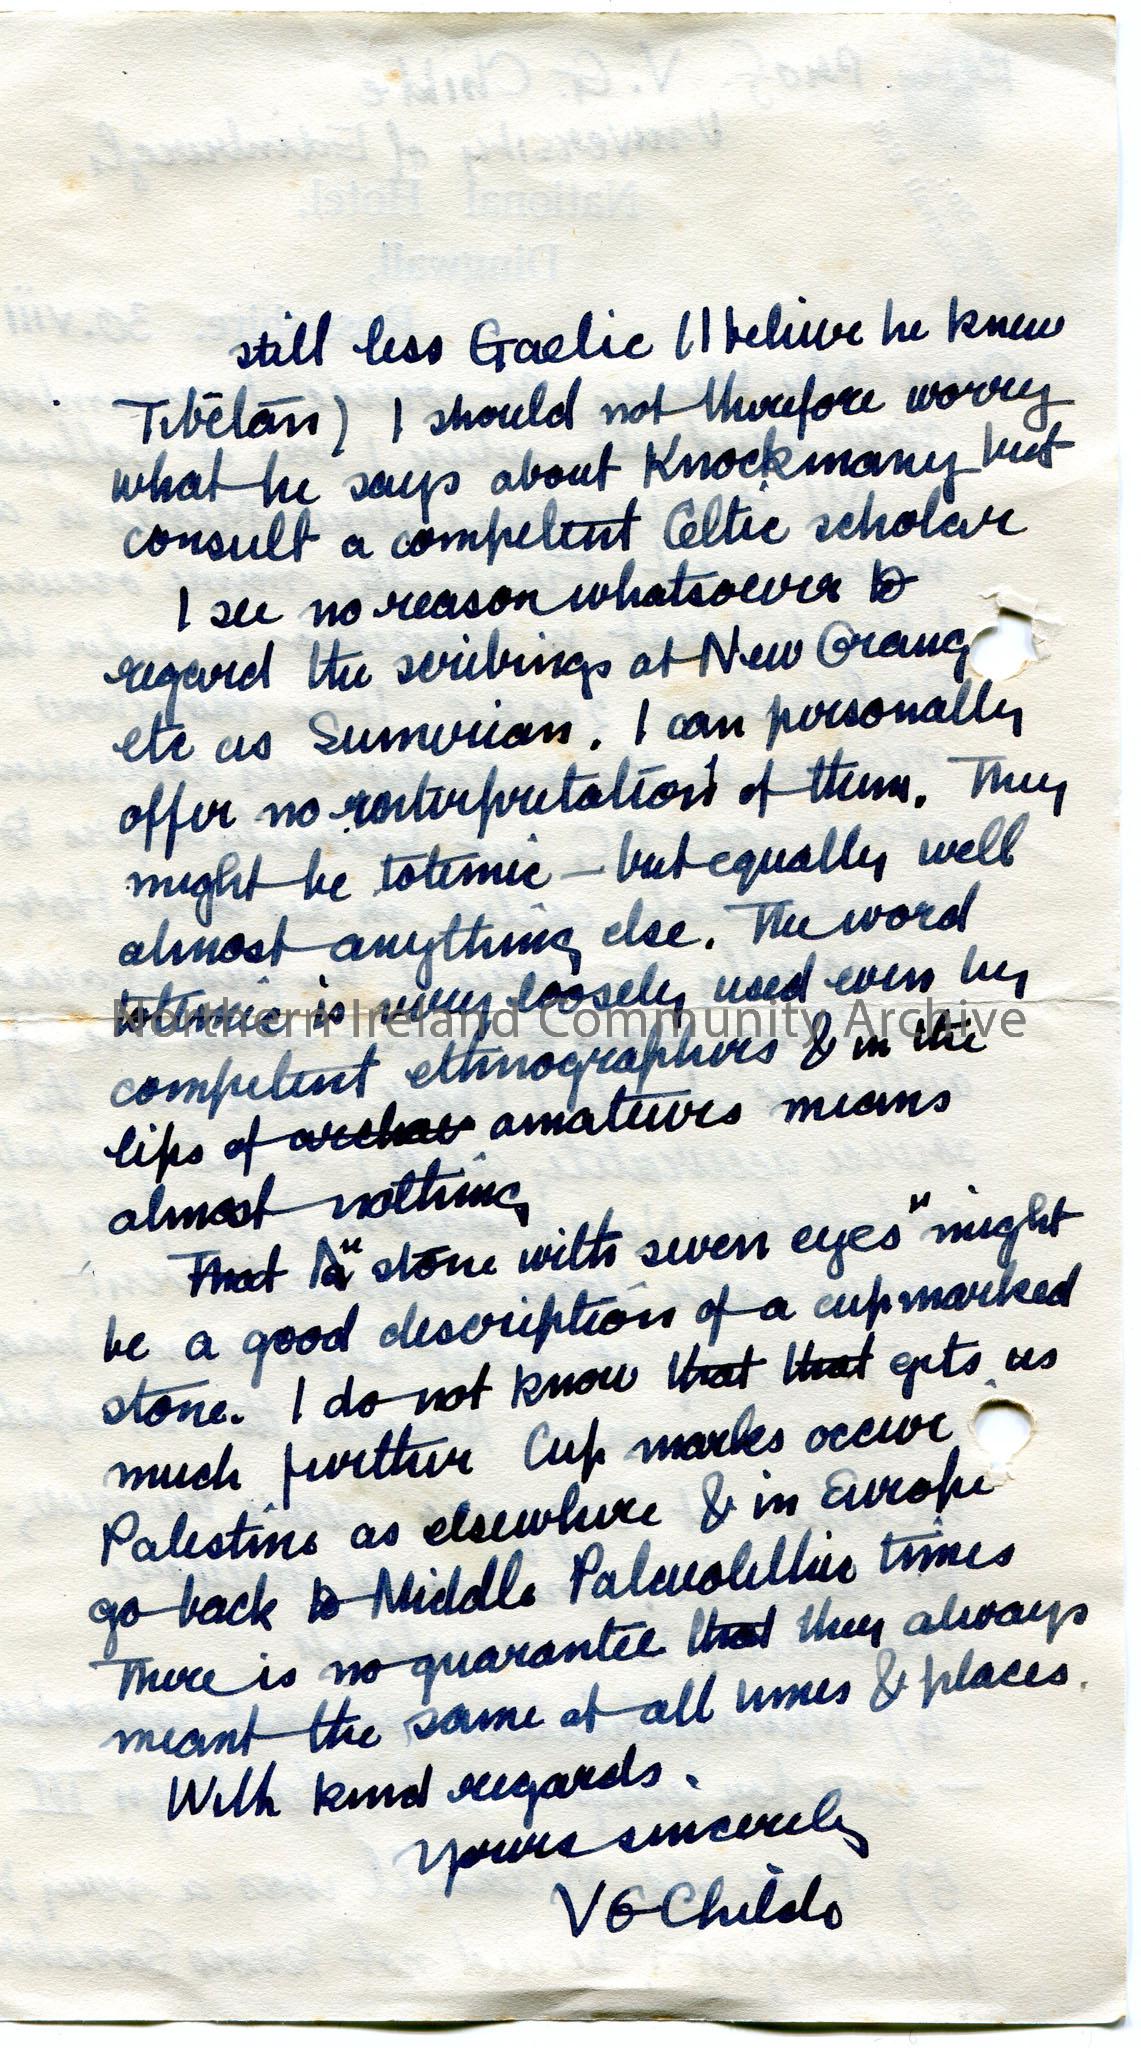 still less Gaelic (I believe he knew
Tibetan) I should not therefore worry
what he says about Knockmany but
consult a competent Celtic scholar
I see no reason whatsoever to
regard the scribings at New Grang
etc as Sumerian. I can personally
offer no interpretation of them. They
might be totemic – but equally well
almost anything else. The word
totemic is very loosely used even by
Northern Ireland Community Archive
competent ethnographers & in the
lips of amateurs means
almost nothing
That A "stone with seven eyes" might
be a good description of a cup marked
stone. I do not know that that gets us
much further Cup marks occur
Palestine as elsewhere & in Europe
go back to Middle Palaeolithic times
There is no guarantee that they always
meant the same at all times & places.
With kind regards.
Yours sincerely
V G Childe